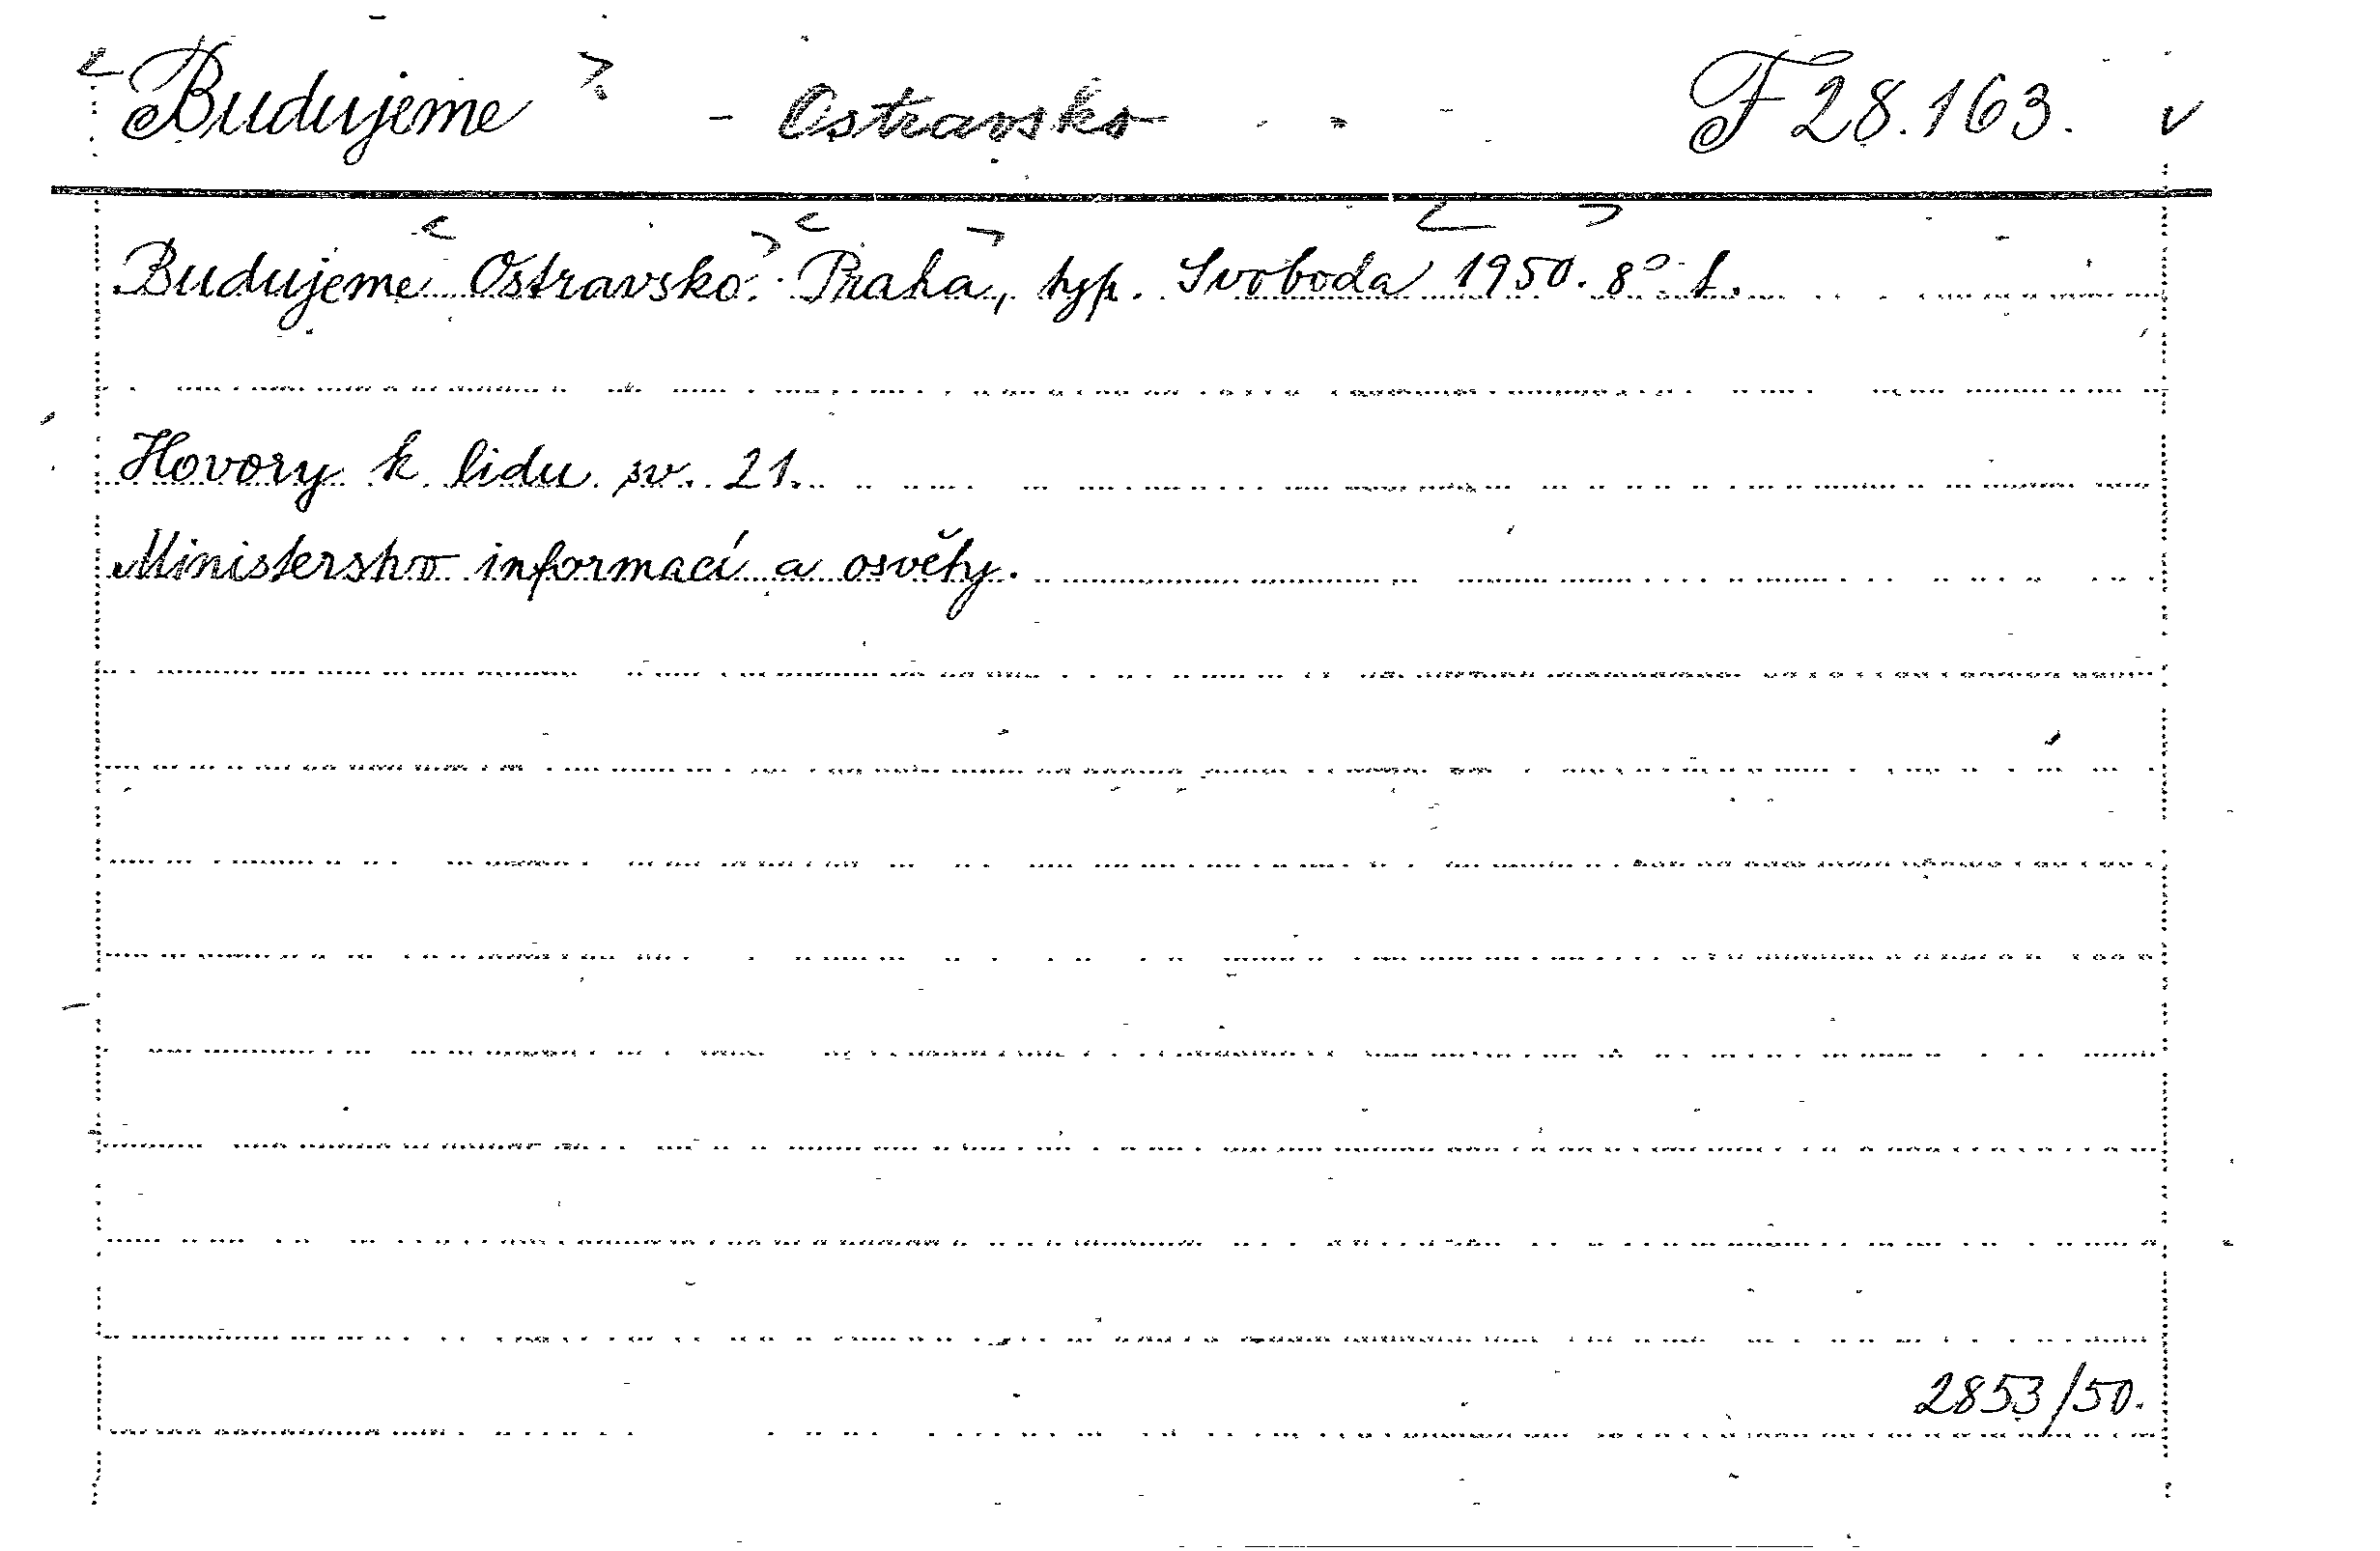 Budujeme - Ostravsko F 28.163. v
Budujeme Ostravsko. Praha, typ. Svoboda 1950. 8° f.
Hovory k lidu sv. 21.
Ministerstvo informací a osvěty.
2853/50.